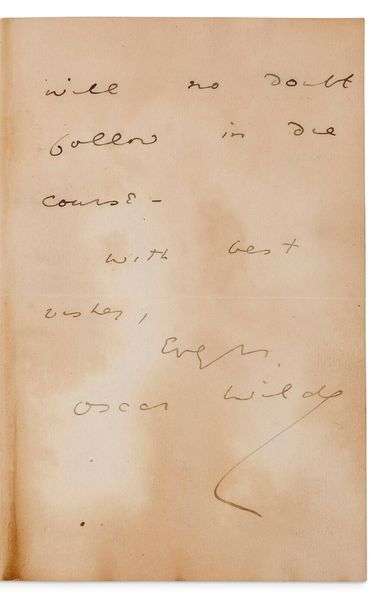 will no doubt
follow in due
course -
with best
wishes,
Oscar Wilde